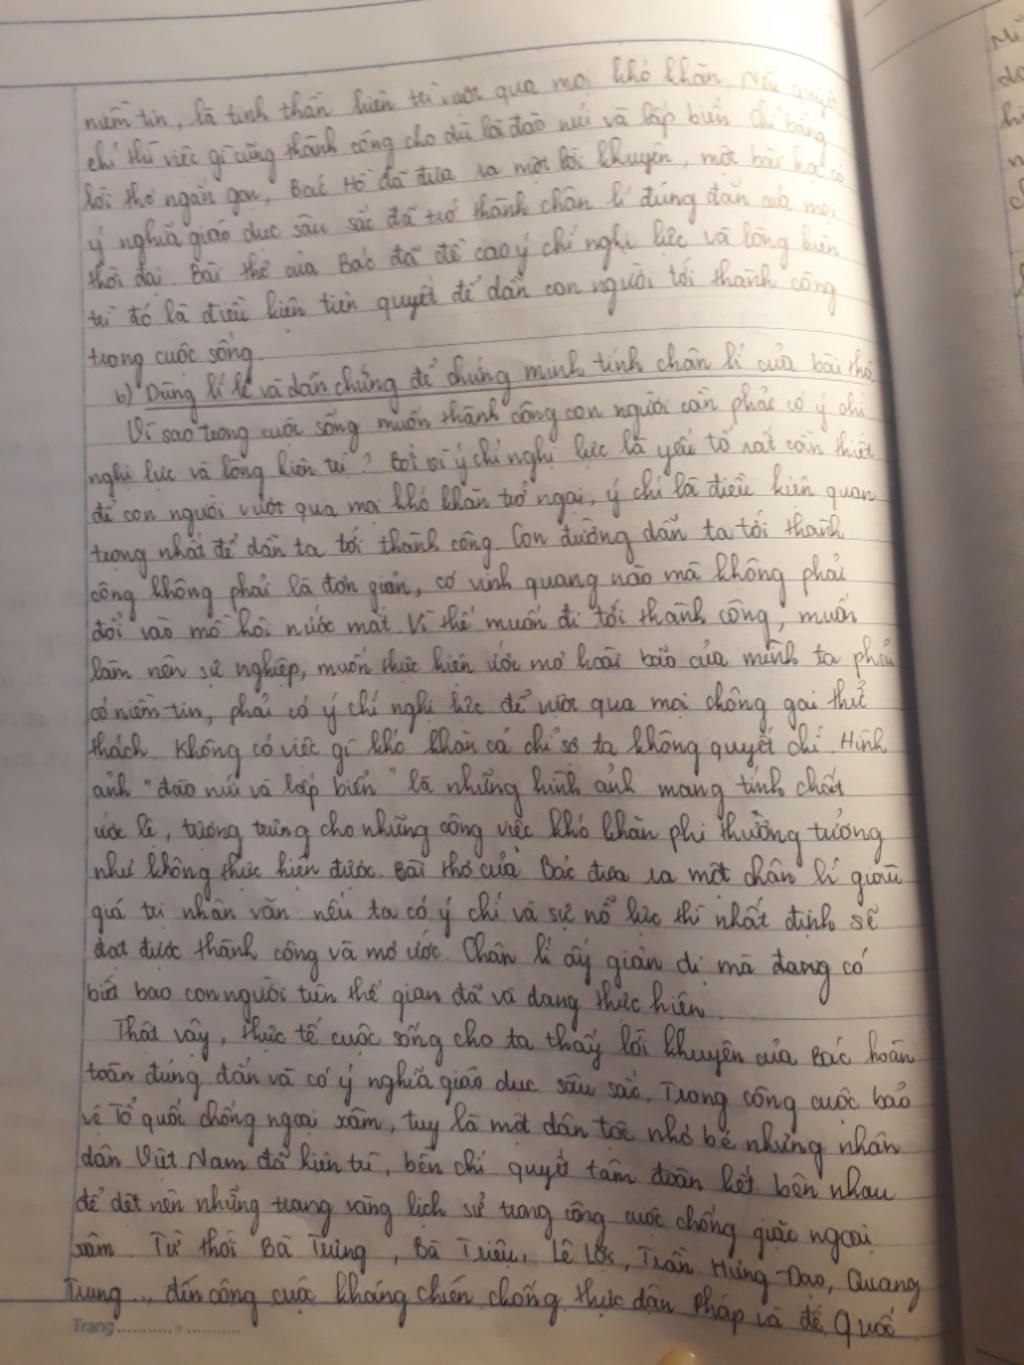 niềm tin, là tinh thần kiên trì vượt qua mọi khó khăn. Nếu quyết
chí thì việc gì cũng thành công cho dù là đào núi và lấp biển. Chỉ bằng
lời thơ ngắn gọn, Bác Hồ đã đưa ra một lời khuyên, một bài học có
ý nghĩa giáo dục sâu sắc đã trở thành chân lí đúng đắn của mọi
thời đại. Bài thơ của Bác đã đề cao ý chí nghị lực và lòng kiên
trì đó là điều kiện tiên quyết để dẫn con người tới thành công
trong cuộc sống.
b) Dùng lí lẽ và dẫn chứng để chứng minh tính chân lí của bài thơ
Vì sao trong cuộc sống muốn thành công con người cần phải có ý chí
nghị lực và lòng kiên trì? Bởi vì ý chí nghị lực là yếu tố rất cần thiết
để con người vượt qua mọi khó khăn trở ngại, ý chí là điều kiện quan
trọng nhất để dẫn ta tới thành công. Con đường dẫn ta tới thành
công không phải là đơn giản, có vinh quang nào mà không phải
đổi vào mồ hôi nước mắt. Vì thế muốn đi tới thành công, muốn
làm nên sự nghiệp, muốn thực hiện ước mơ hoài bão của mình ta phải
có niềm tin, phải có ý chí nghị lực để vượt qua mọi chông gai thử
thách. Không có việc gì khó khăn cả chỉ sợ ta không quyết chí. Hình
ảnh "đào núi và lấp biển" là những hình ảnh mang tính chất
ước lệ, tượng trưng cho những công việc khó khăn phi thường tưởng
như không thực hiện được. Bài thơ của Bác đưa ra một chân lí giàu
giá trị nhân văn nếu ta có ý chí và sự nổ lực thì nhất định sẽ
đạt được thành công và mơ ước. Chân lí ấy giản dị mà đang có
biết bao con người trên thế gian đã và đang thực hiện.
Thật vậy, thực tế cuộc sống cho ta thấy lời khuyên của Bác hoàn
toàn đúng đắn và có ý nghĩa giáo dục sâu sắc. Trong công cuộc bảo
vệ Tổ quốc chống ngoại xâm, tuy là một dân tộc nhỏ bé nhưng nhân
dân Việt Nam đã kiên trì, bền chí quyết tâm đoàn kết bên nhau
để dệt nên những trang vàng lịch sử trong công cuộc chống giặc ngoại
xâm. Từ thời Bà Trưng, Bà Triệu, Lê Lợi, Trần Hưng Đạo, Quang
Trung... đến công cuộc kháng chiến chống thực dân Pháp và đế Quốc
Trang